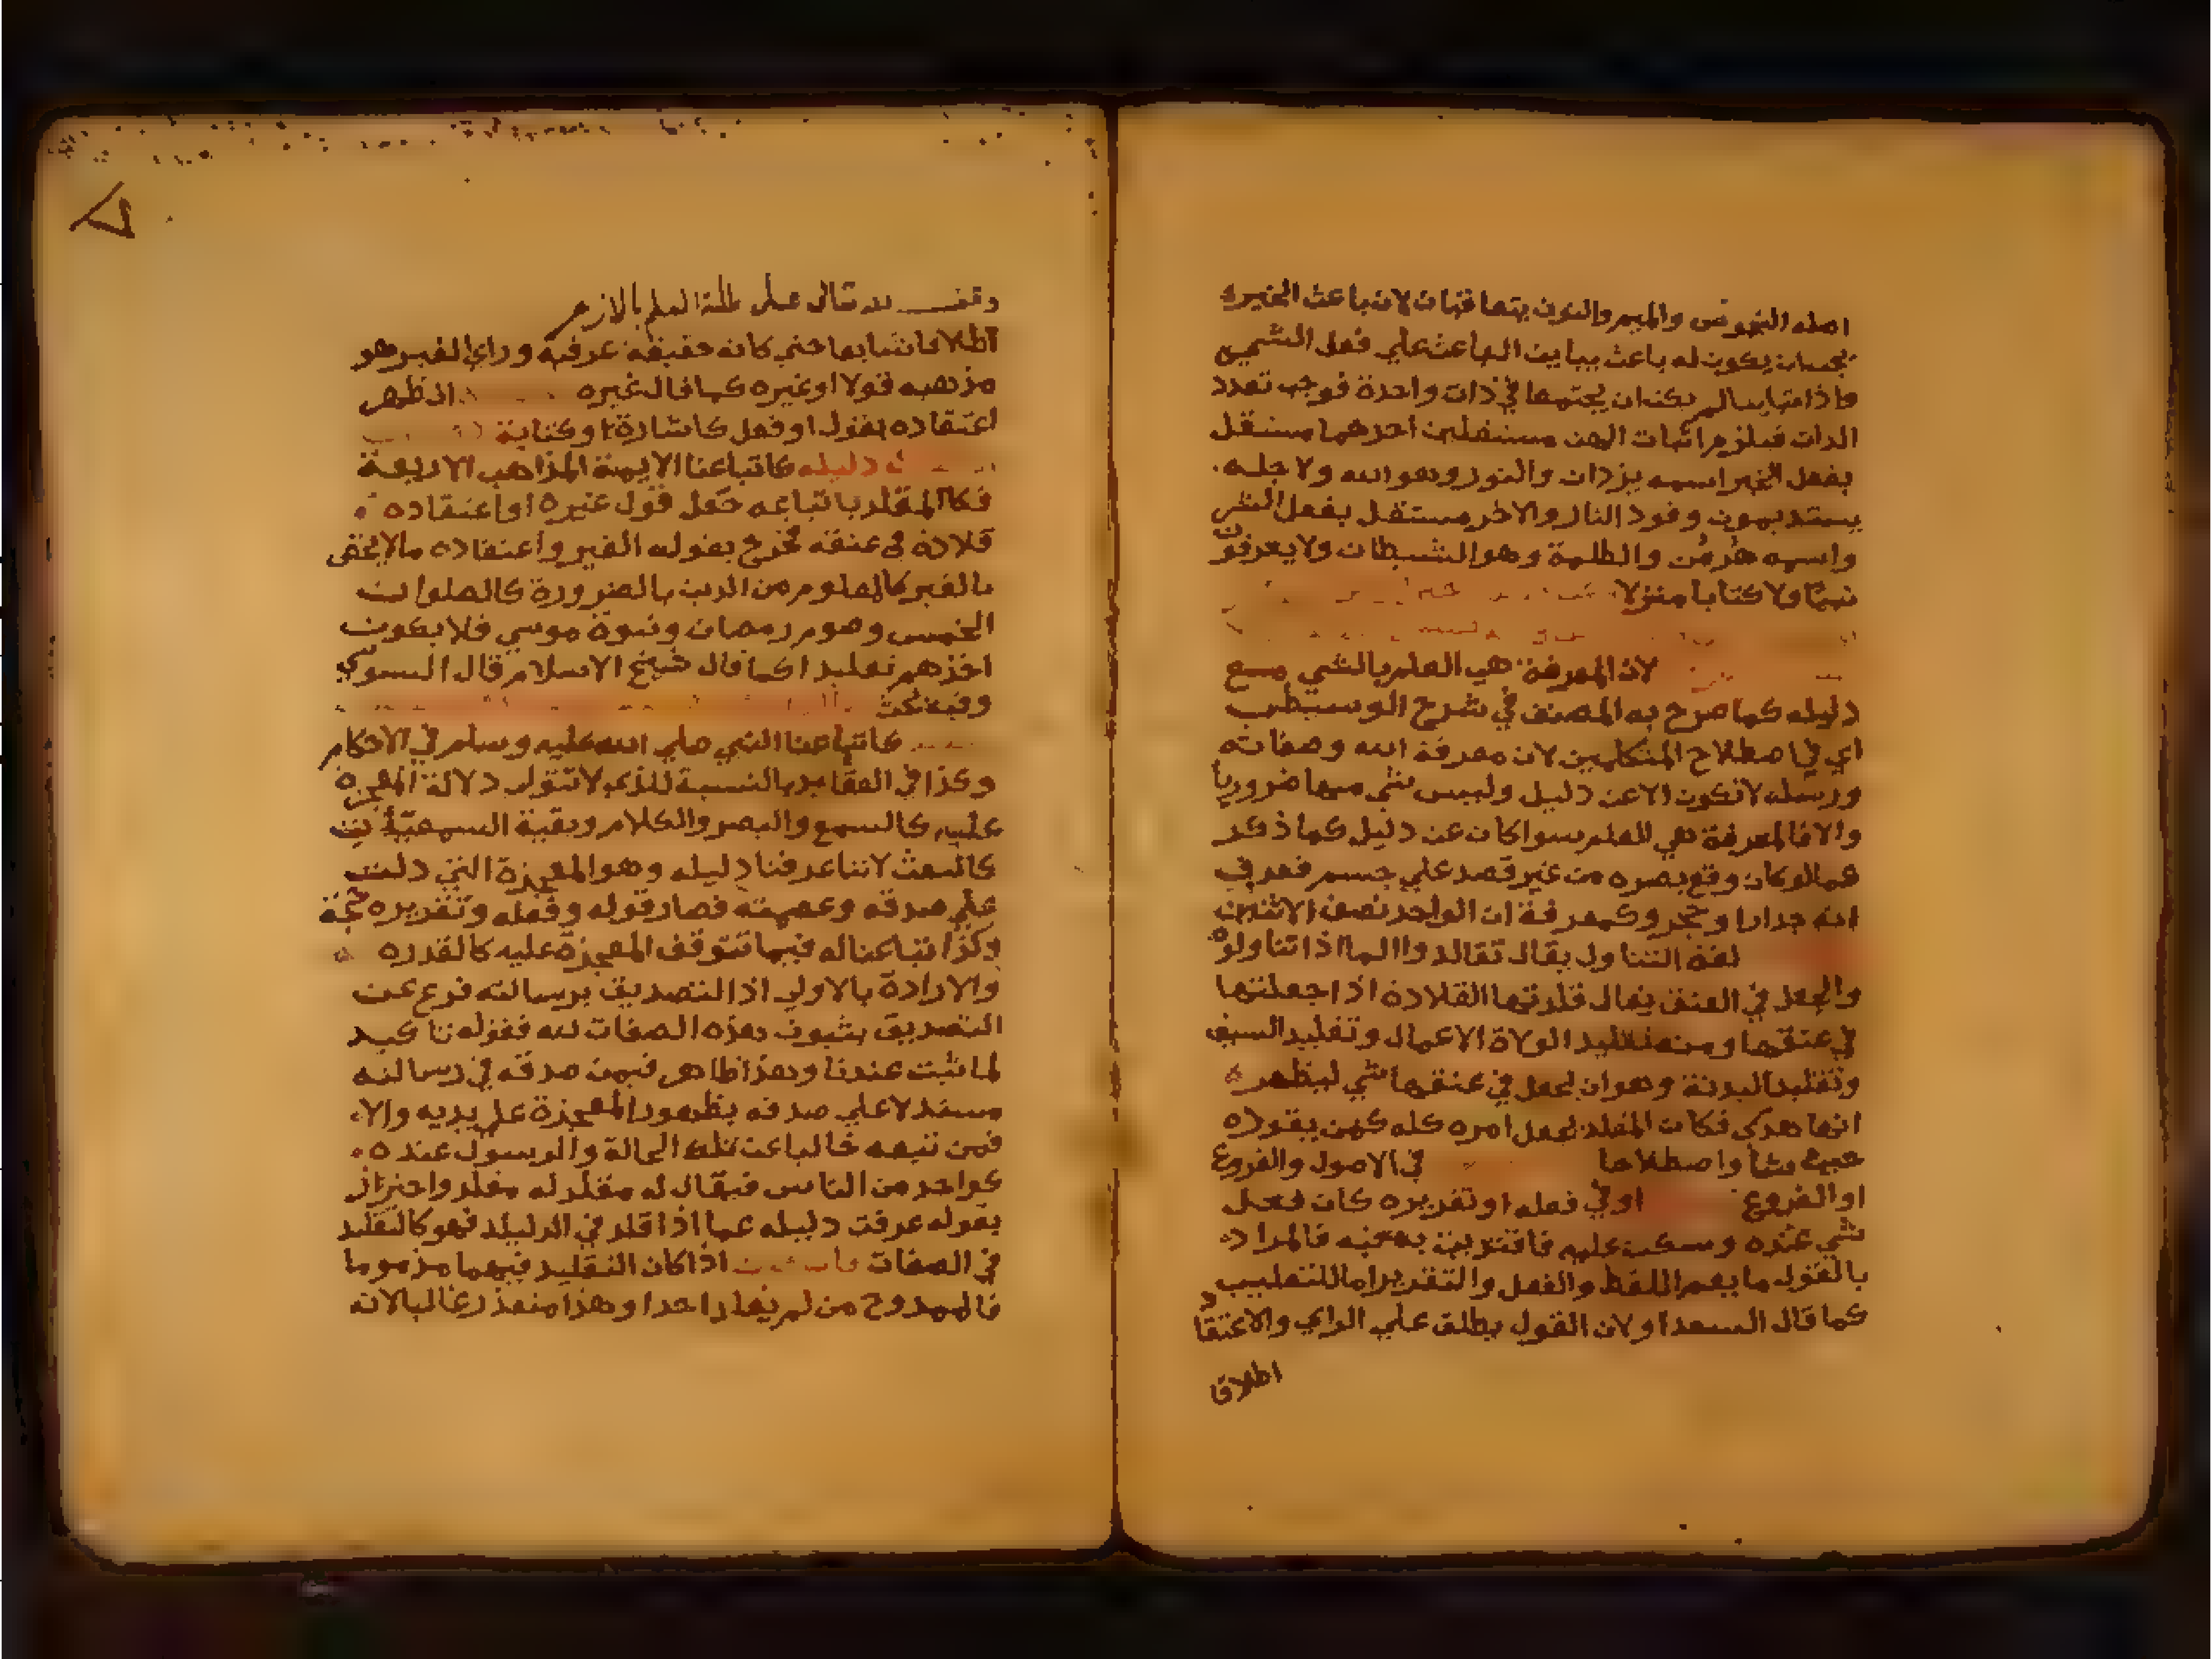 اصله النجوس والميم والنون يتعاقبان لان باعث الخير
يجب ان يكون له باعث يباين الباعث علي فعل الشر
واذا تباينا لم يكن ان يجتمعا في ذات واحدة فوجب تعدد
الذات فيلزم اثبات الهين مستقلين احدهما مستقل
بفعل الخير اسمه يزدان والنور وهو الله ولاجله
يستديمون وقود النار والاخر مستقل بفعل الشر
واسمه هرمن والظلمة وهو الشيطان ولا يعرفون
نبيا ولا كتابا منزلا
لان المعرفة هي العلم بالشي مع
دليله كما صرح به المصنف في شرح الوسيطي
اي في اصطلاح المتكلمين لان معرفة الله وصفاته
ورسله لا تكون الا عن دليل وليس شي منها ضروريا
والا فالمعرفة هي العلم سوا كان عن دليل كما ذكر
عما لو كان وقع بصره من غير قصد علي جسم فعرف
انه جدارا وحجر وكمعرفة ان الواحد نصف الاثنين
لغة التناول يقال تقالدوا الما اذا تناولوه
والجعل في العنق يقال قلدتها القلادة اذا جعلتها
في عنقها ومنه تقليد الولاة الاعمال وتقليد السيف
وتقليد البدنة وهو ان يجعل في عنقها شي ليظهر
انها هدي فكان المقلد يجعل امره كله كمن يقوده
حيث شا واصطلاحا في الاصول والفروع
او الفروع او في فعله او تقريره كان فعل
شي عنده وسكت عليه فالمراد
بالقول ما يعم اللفظ والفعل والتقرير اما للتغليب
كما قال السعد او لان القول يطلق علي الراي والاعتقاد
اطلاقا
وقف لله تعالى على طلبة العلم بالازهر
اطلاقا شايعا حتي كانه حقيقة عرفية وراي الغير هو
مذهبه قولا او غيره كما قال غيره اذ ظهر
اعتقاده بقول او فعل كاشارة او كتابة
دليله كاتباعنا الايمة المذاهب الاربعة
فكان المقلد باتباعه جعل قول غيره او اعتقاده
قلادة في عنقه فخرج بقوله الغير واعتقاده ما لا يختص
بالغير كالمعلوم من الدين بالضرورة كالصلوات
الخمس وصوم رمضان ونبوة موسي فلا يكون
اخذهم تقليدا كما قال شيخ الاسلام قال السنوسي
وفيه بحث
كاتباعنا النبي صلي الله عليه وسلم في الاحكام
وكذا في العقايد بالنسبة للذي لا تتوقف دلالة المعجزة
عليه كالسمع والبصر والكلام وبقية السمعيات
كالبعث لاننا عرفنا دليله وهو المعجزة التي دلت
علي صدقه وعصمته فصار قوله وفعله وتقريره حجة
وكذا اتباعنا له فيما تتوقف المعجزة عليه كالقدرة
والارادة بالاولي اذ التصديق برسالته فرع عن
التصديق بثبوت هذه الصفات لله فقوله تاكيد
لما ثبت عندنا وهذا ظاهر فيمن صدقه في رسالته
مستدلا علي صدقه بظهور المعجزة علي يديه والا
فمن تبعه خاليا عن تلك الحالة والرسول عنده
كواحد من الناس فيقال له مقلد واحترز
بقوله عرفت دليله عما اذا قلد في الدليل فهو كالتقليد
في الصفات اذا كان التقليد فيهما مذموما
فالممدوح من لم يقلد احدا وهذا متعذر غالبا لانه